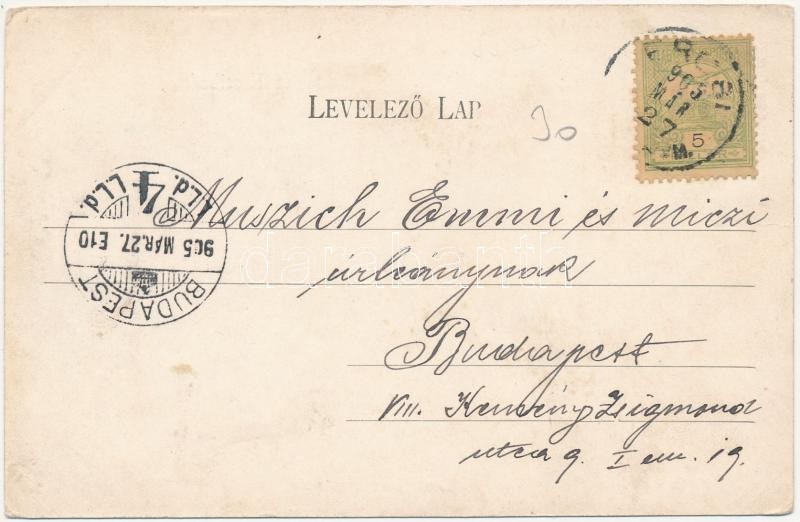 LEVELEZŐ LAP
30
905
MÁR
27
M.
5
BUDAPEST
905 MÁR.27. E10
4
I.L.d. I.L.d.
Muszich Emmi és miczi
úrleánynak
Budapest
VIII. Kemény Zsigmond
utca 9. I em. 19.
darabanth